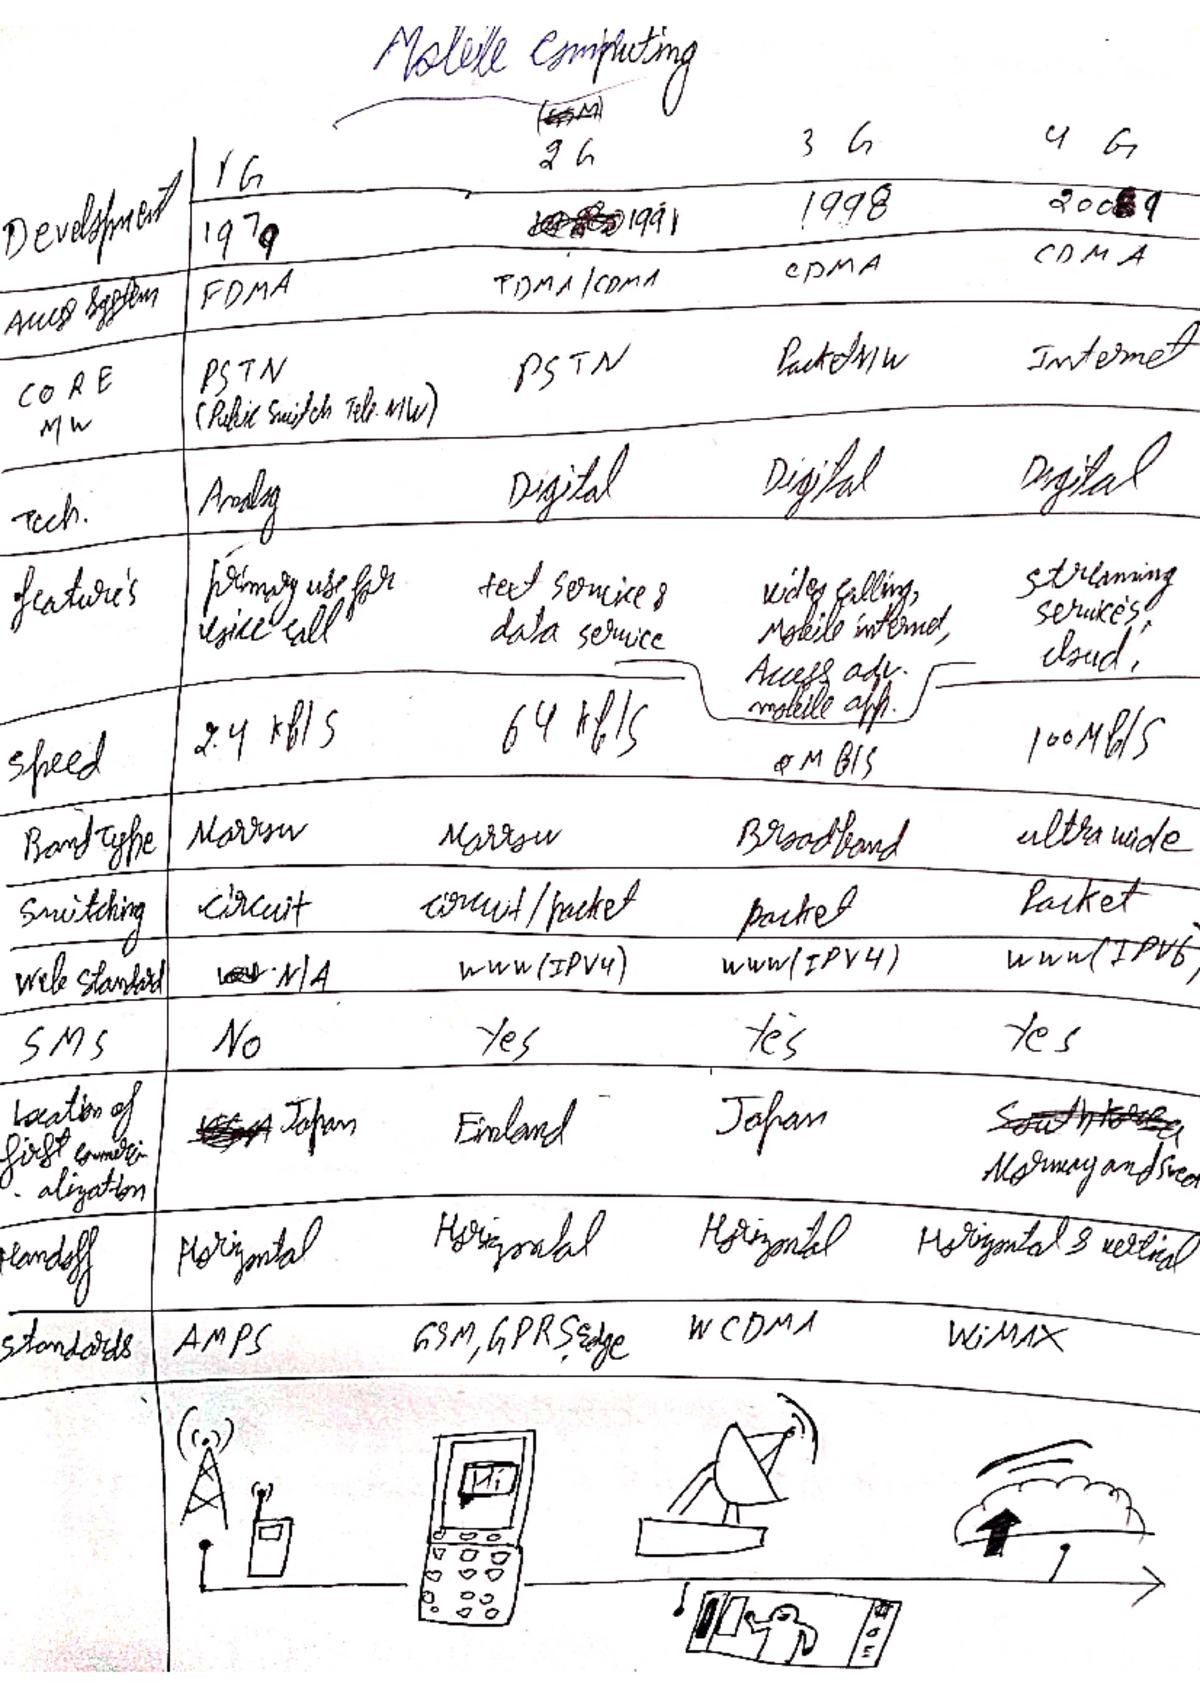 Mobile Computing
(GSM)
1G 2G 3 G 4 G
Development 1979 1991 1998 2009
Access System FDMA TDMA/CDMA CDMA CDMA
CORE N/W PSTN PSTN Packet N/W Internet
(Public Switch Tele. N/W)
Tech. Analog Digital Digital Digital
feature's primary use for text service & video calling, streaming
voice call data service Mobile internet, service's,
Access adv. cloud.
mobile app.
Speed 2.4 kb/s 64 kb/s MB/s 100Mb/s
Band type Narrow Narrow Broadband ultra wide
Switching circuit circuit/packet packet Packet
Web Standard N/A www(IPV4) www(IPV4) www(IPV6)
SMS No Yes Yes Yes
Location of
first commerci
alization Japan Finland Japan Norway and Swe
Handoff Horizontal Horizontal Horizontal Horizontal & vertical
Standards AMPS GSM, GPRS, Edge WCDMA WiMAX
Hi